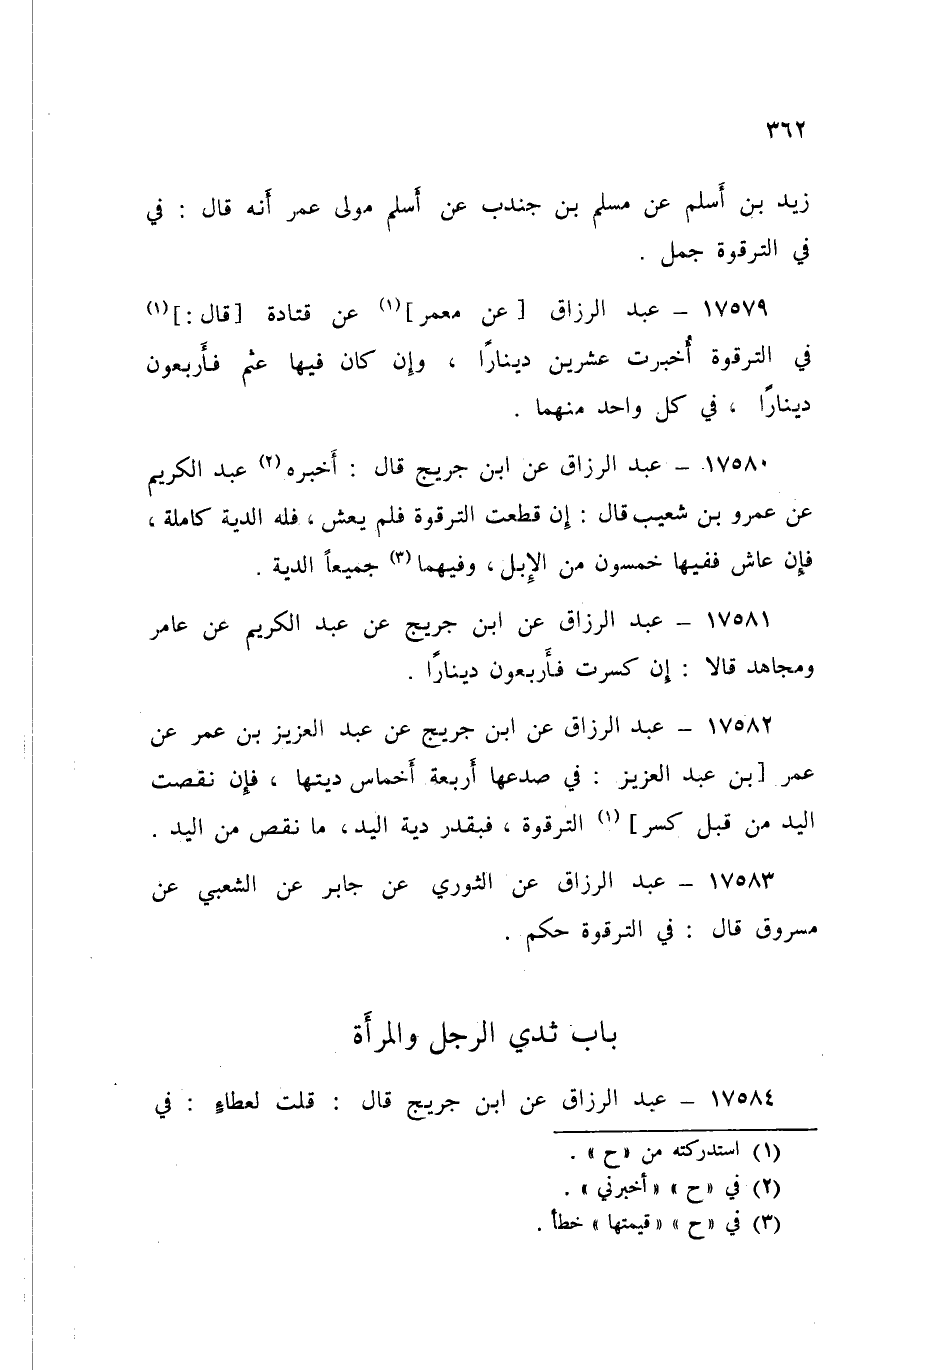 ٣٦٢
زيد بن أسلم عن مسلم بن جندب عن أسلم مولى عمر أنه قال : في
في الترقوة جمل .
١٧٥٧٩ – عبد الرزاق [ عن معمر ](١) عن قتادة [قال :](١)
في الترقوة أُخبرت عشرين دينارًا ، وإن كان فيها عثم فأربعون
دينارًا ، في كل واحد منهما .
١٧٥٨٠ – عبد الرزاق عن ابن جريج قال : أخبره(٢) عبد الكريم
عن عمرو بن شعيب قال : إن قطعت الترقوة فلم يعش ، فله الدية كاملة ،
فإن عاش ففيها خمسون من الإبل ، وفيهما(٣) جميعاً الدية .
١٧٥٨١ – عبد الرزاق عن ابن جريج عن عبد الكريم عن عامر
ومجاهد قالا : إن كسرت فأربعون دينارًا .
١٧٥٨٢ – عبد الرزاق عن ابن جريج عن عبد العزيز بن عمر عن
عمر [بن عبد العزيز : في صدعها أربعة أخماس ديتها ، فإن نقصت
اليد من قبل كسر](١) الترقوة ، فبقدر دية اليد ، ما نقص من اليد .
١٧٥٨٣ – عبد الرزاق عن الثوري عن جابر عن الشعبي عن
مسروق قال : في الترقوة حكم .
باب ثدي الرجل والمرأة
١٧٥٨٤ – عبد الرزاق عن ابن جريج قال : قلت لعطاءٍ : في
(١) استدركته من «ح» .
(٢) في «ح» «أخبرني» .
(٣) في «ح» «قيمتها» خطأ .